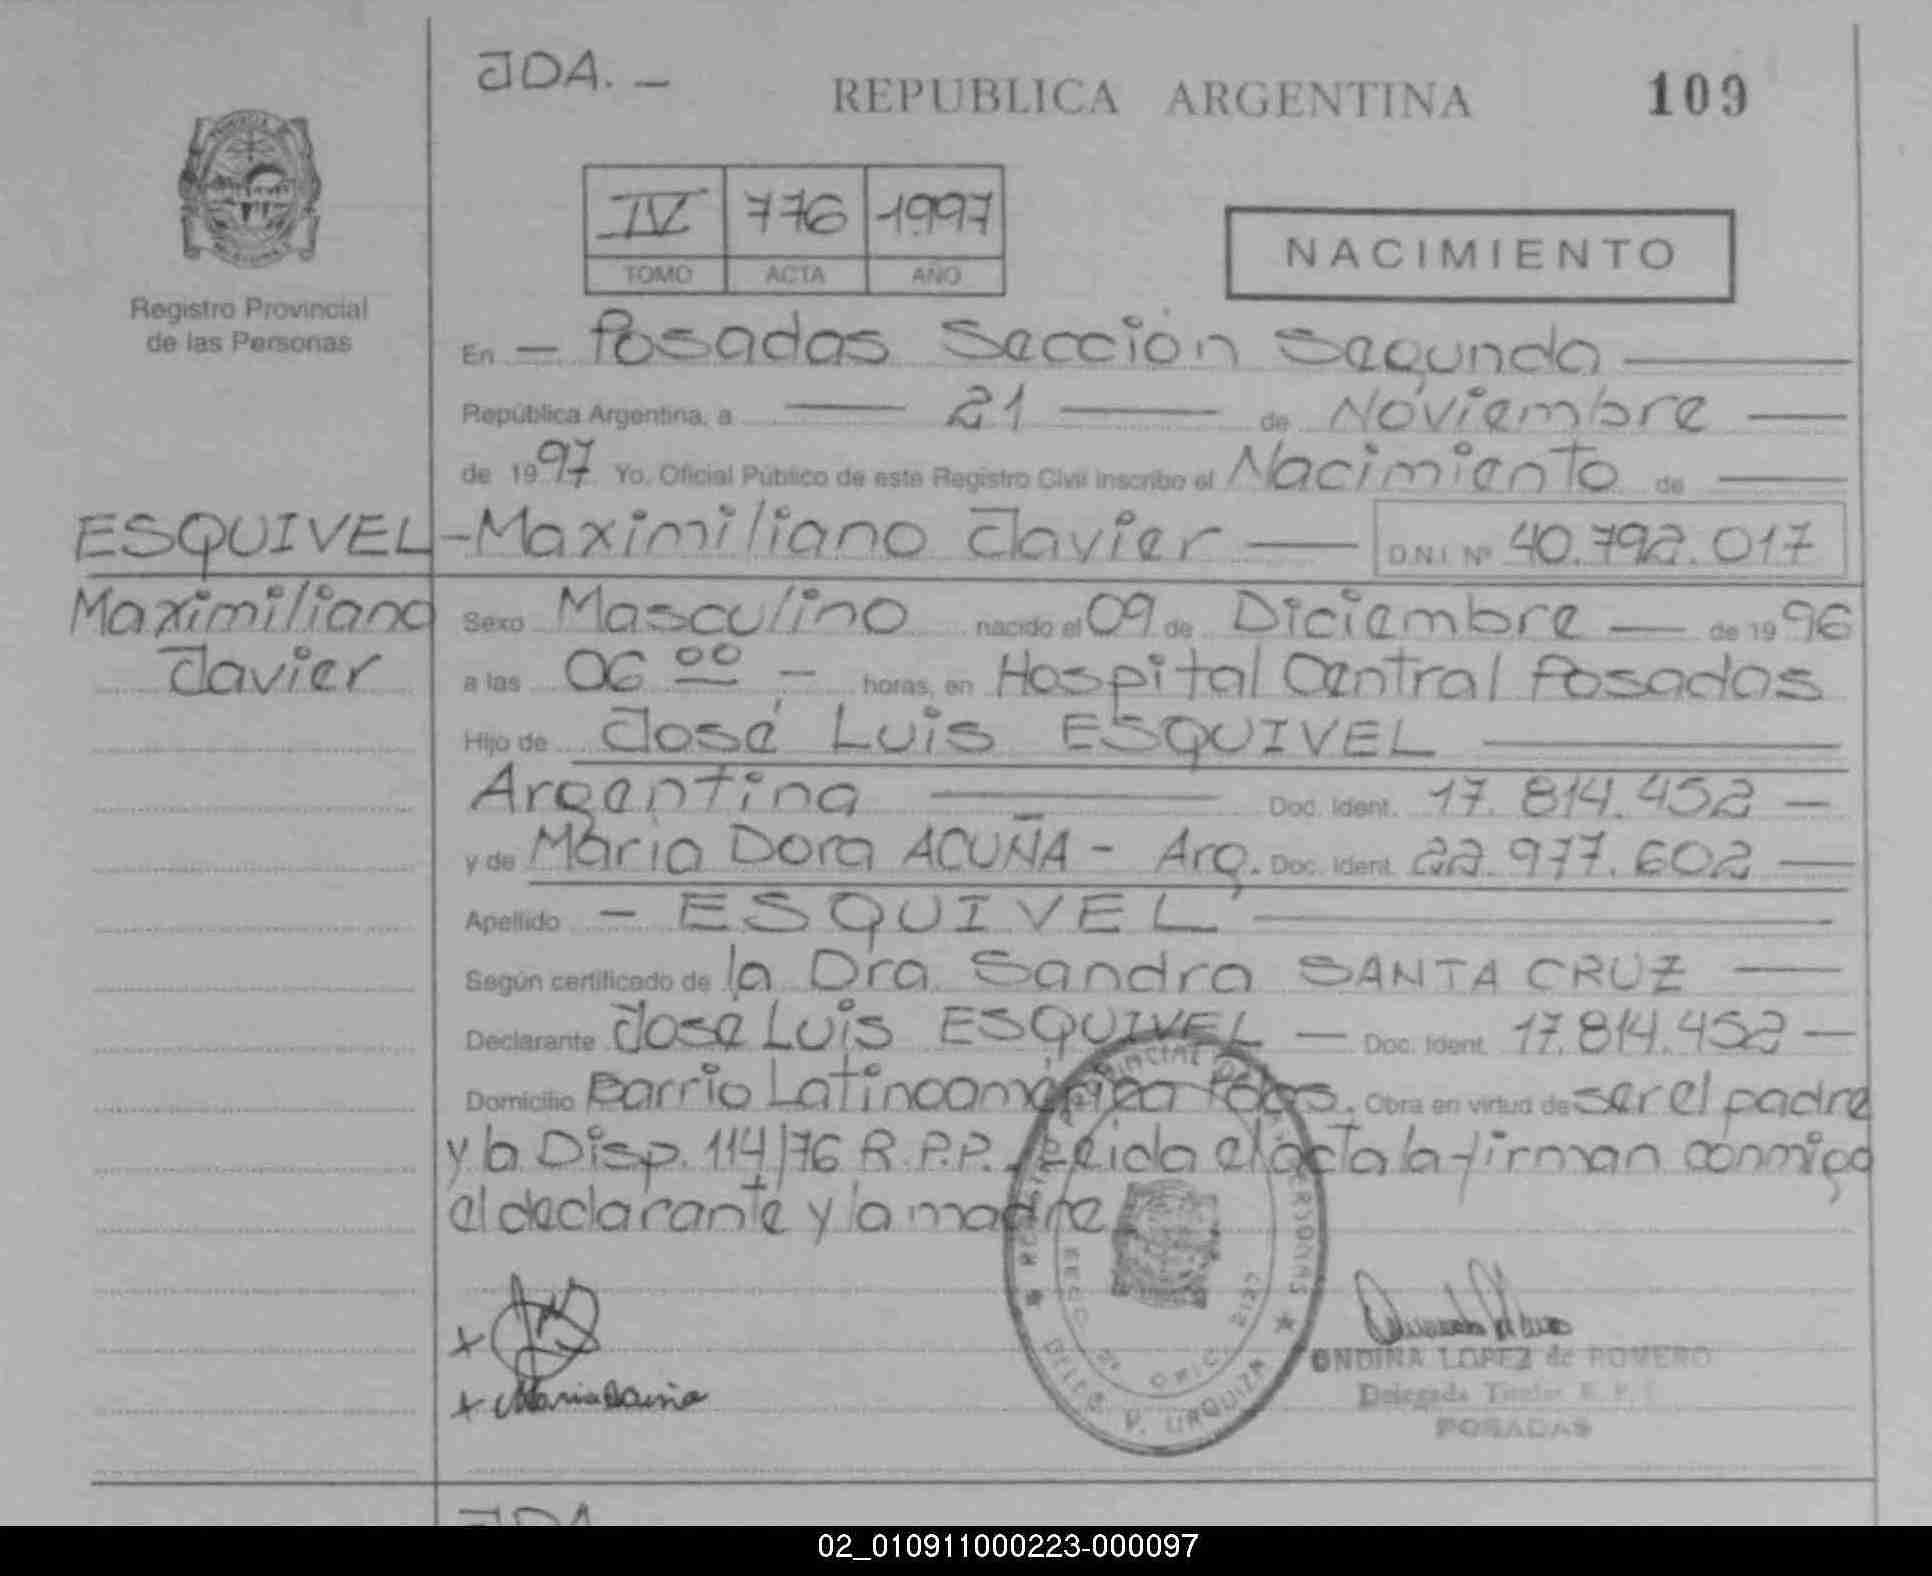 JDA. -
REPUBLICA ARGENTINA
109
IV 776 1997
TOMO ACTA AÑO
NACIMIENTO
Registro Provincial
de las Personas
En - Posadas Sección Segunda
República Argentina, a 21 de Noviembre
de 1997 Yo, Oficial Público de este Registro Civil inscribo el Nacimiento de
ESQUIVEL - Maximiliano Javier D.N.I. Nº 40.792.017
Maximiliano
Javier
Sexo Masculino nacido el 09 de Diciembre de 1996
a las 06 00 - horas, en Hospital Central Posadas
Hijo de José Luis ESQUIVEL
Argentina Doc. Ident. 17.814.452 -
y de María Dora ACUÑA - Arg. Doc. Ident. 22.977.602
Apellido - ESQUIVEL
Según certificado de la Dra. Sandra SANTA CRUZ
Declarante José Luis ESQUIVEL - Doc. Ident. 17.814.452 -
Domicilio Barrio Latinoamérica Pdas. Obra en virtud de ser el padre
y la Disp. 114/76 R.P.P. Leída el acta la firman conmigo
el declarante y la madre
REGISTRO PROVINCIAL DE LAS PERSONAS
SECC. 2ª OFIC. 2127
DELEG. V. URQUIZA
ONDINA LOPEZ de ROMERO
Delegada Titular R. P.
POSADAS
JDA
02_010911000223-000097